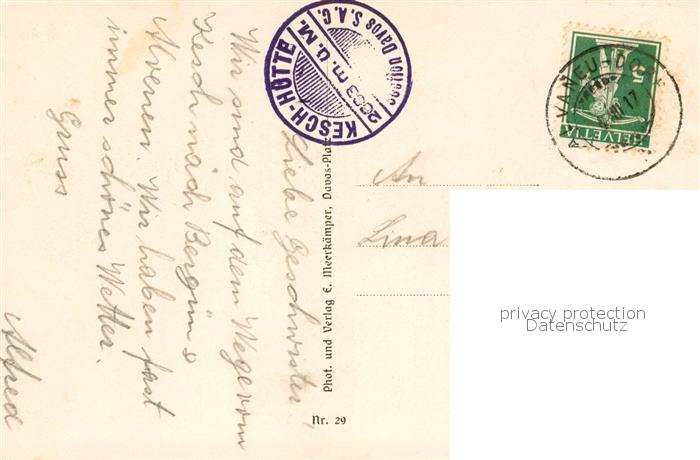 Liebe Geschwister!
Wir sind auf dem Wege vom
Kesch nach Bergün &
Alvenen. Wir haben fast
immer schönes Wetter.
Gruss
Alfred
Phot. und Verlag E. Meerkämper, Davos-Platz
Nr. 29
KESCH-HÜTTE
2603 m. ü. M.
Section Davos S.A.C.
An
Lina
5
HELVETIA
17
privacy protection
Datenschutz